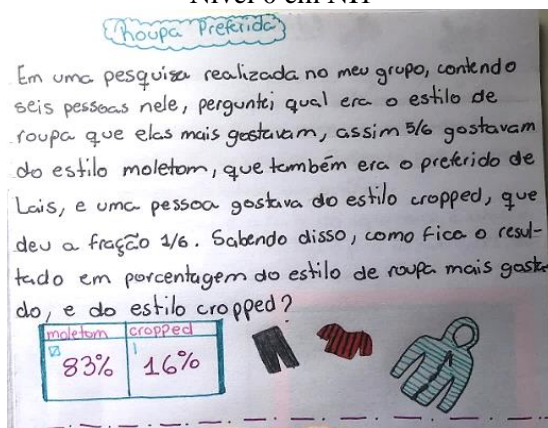 Nível 6 em NH
Roupa Preferida
Em uma pesquisa realizada no meu grupo, contendo
seis pessoas nele, perguntei qual era o estilo de
roupa que elas mais gostavam, assim 5/6 gostavam
do estilo moletom, que também era o preferido de
Lais, e uma pessoa gostava do estilo cropped, que
deu a fração 1/6. Sabendo disso, como fica o resul-
tado em porcentagem do estilo de roupa mais gosta
do, e do estilo cropped?
moletom cropped
83% 16%